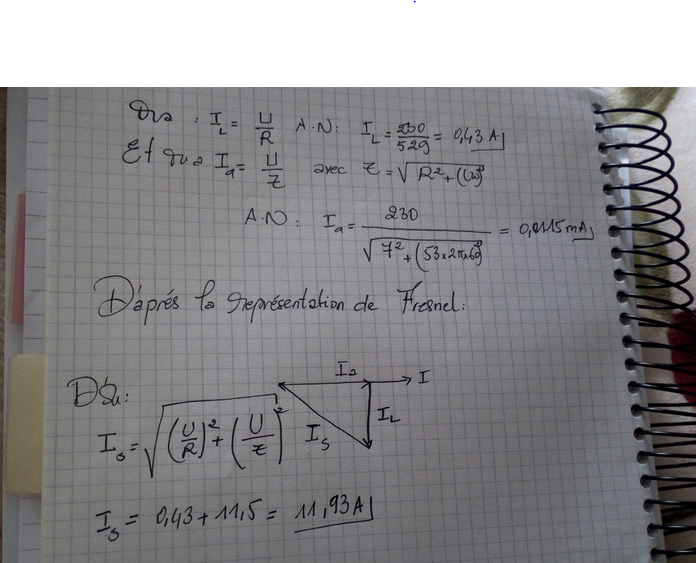 On a : I_L = U/R A.N: I_L = 230/529 = 0,43 A
Et on a I_a = U/Z avec Z = √(R² + (Lω)²)
A.N: I_a = 230/√(7² + (53×2π×60)²) = 0,0115 mA
D'après la représentation de Fresnel:
I_a I
D'où:
I_L
I_s = √((U/R)² + (U/Z)²) I_s
I_s = 0,43 + 11,5 = 11,93 A